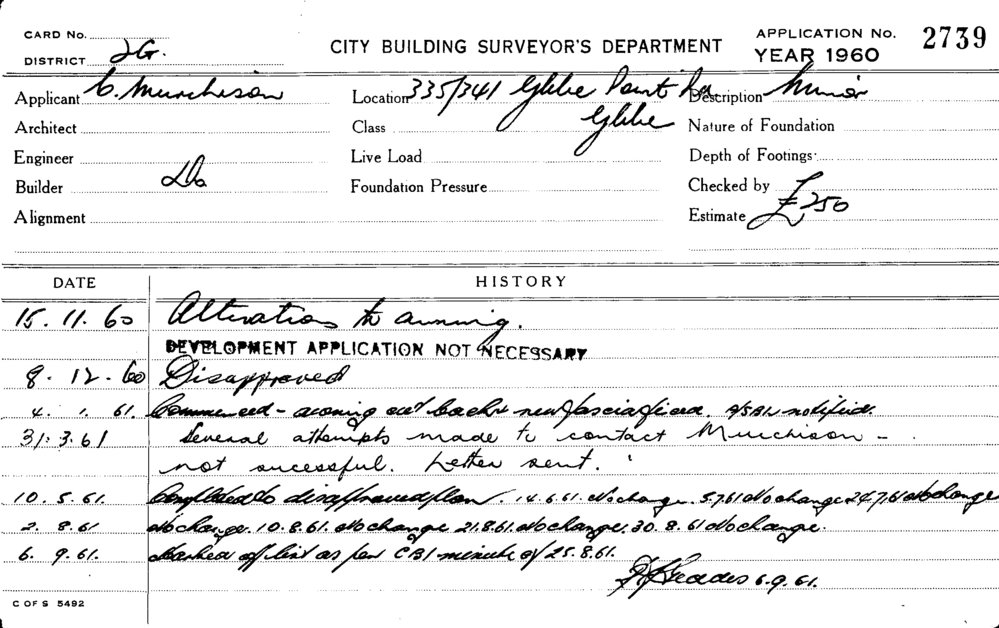 CARD No.
DISTRICT 2G.
CITY BUILDING SURVEYOR'S DEPARTMENT
APPLICATION No. 2739
YEAR 1960
Applicant C. Murchison Location 335/341 Glebe Point Rd Description Minor
Architect Class Glebe Nature of Foundation
Engineer Live Load Depth of Footings
Builder Do Foundation Pressure Checked by
Alignment Estimate £250
DATE HISTORY
15.11.60 Alteration to awning.
DEVELOPMENT APPLICATION NOT NECESSARY
8.12.60 Disapproved
4.1.61 Commenced - awning cut back & new fascia fixed. notified.
31.3.61 Several attempts made to contact Murchison -
not sucessful. Letter sent.
10.5.61. Completed to disapproved plan. 14.6.61. No change. 5.7.61 No change 24.7.61 No change
2.8.61 No change. 10.8.61. No change 21.8.61. No change. 30.8.61 No change.
6.9.61. Marked off list as per CBI minute of 25.8.61.
6.9.61.
C OF S 5492